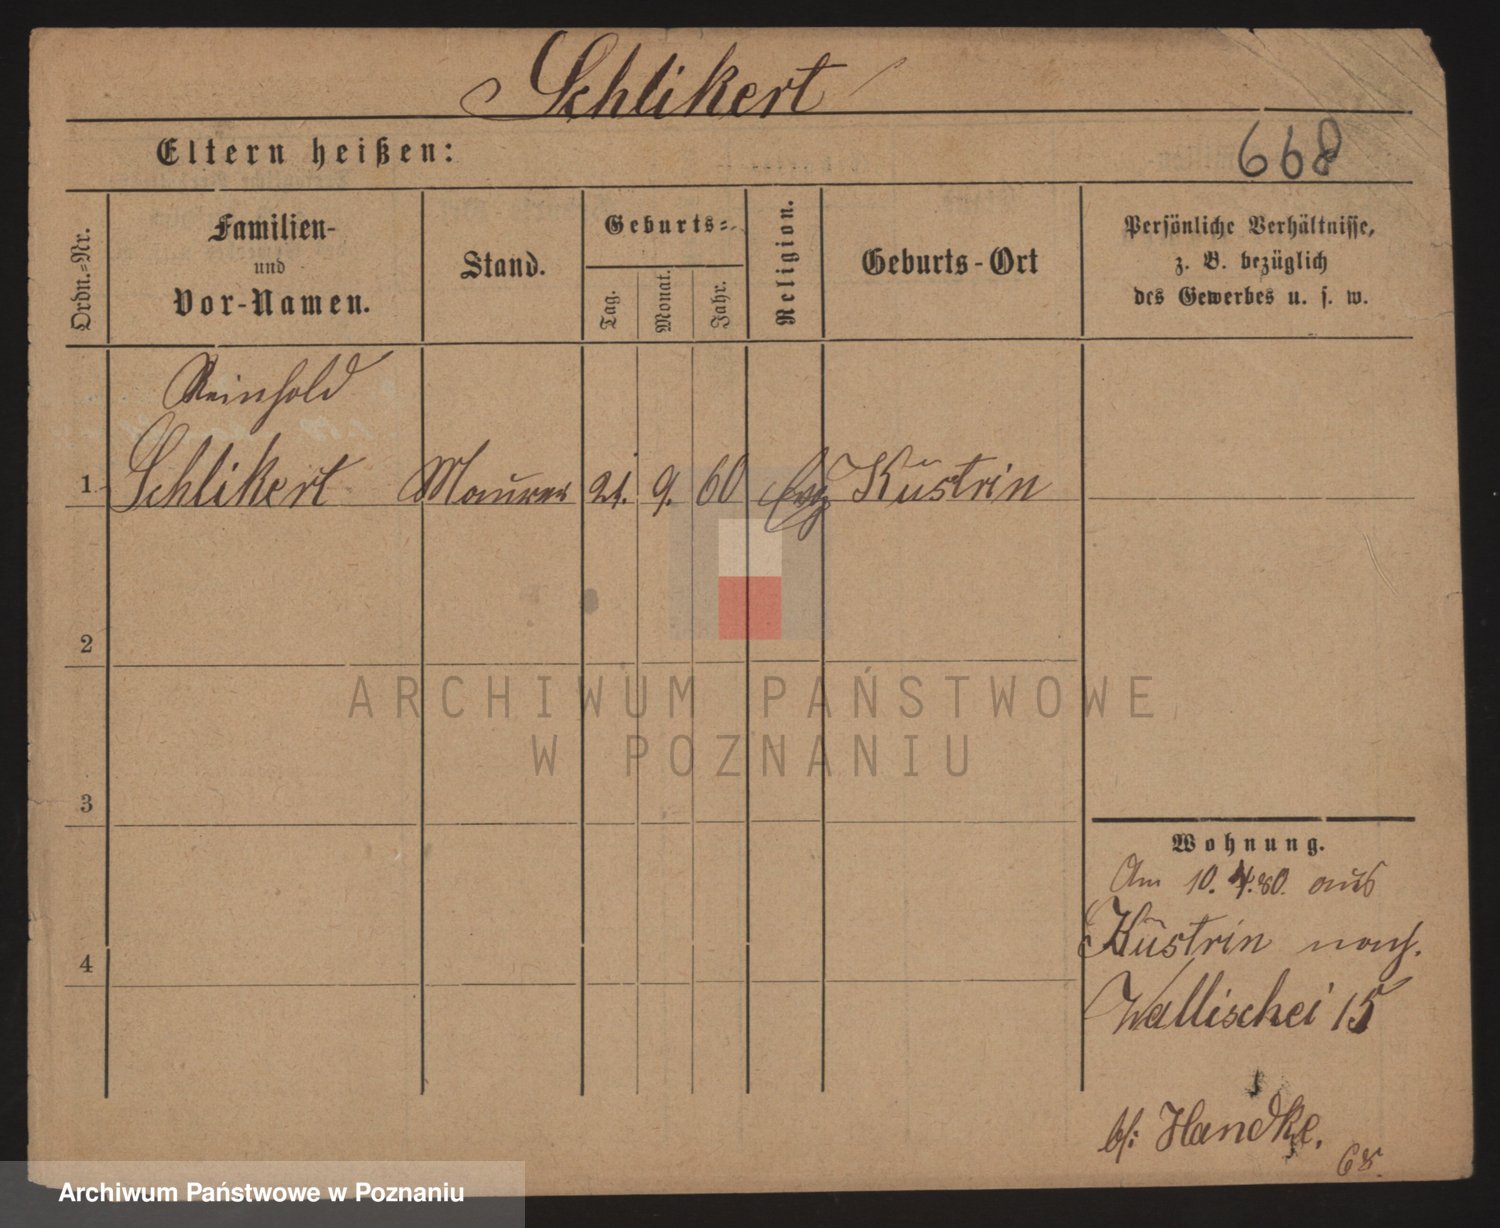 Schlikert
668
Eltern heißen:
Ordn.-Nr.
Familien-
und
Vor-Namen.
Stand.
Geburts-
Tag.
Monat.
Jahr.
Religion.
Geburts-Ort
Persönliche Verhältnisse,
z. B. bezüglich
des Gewerbes u. s. w.
Reinhold
1 Schlikert Maurer 21. 9. 60 Evg Küstrin
2
ARCHIWUM PAŃSTWOWE
W POZNANIU
3
Wohnung.
Am 10. 4. 80. aus
Küstrin nach.
4
Wallischei 15
bei Handke.
Archiwum Państwowe w Poznaniu